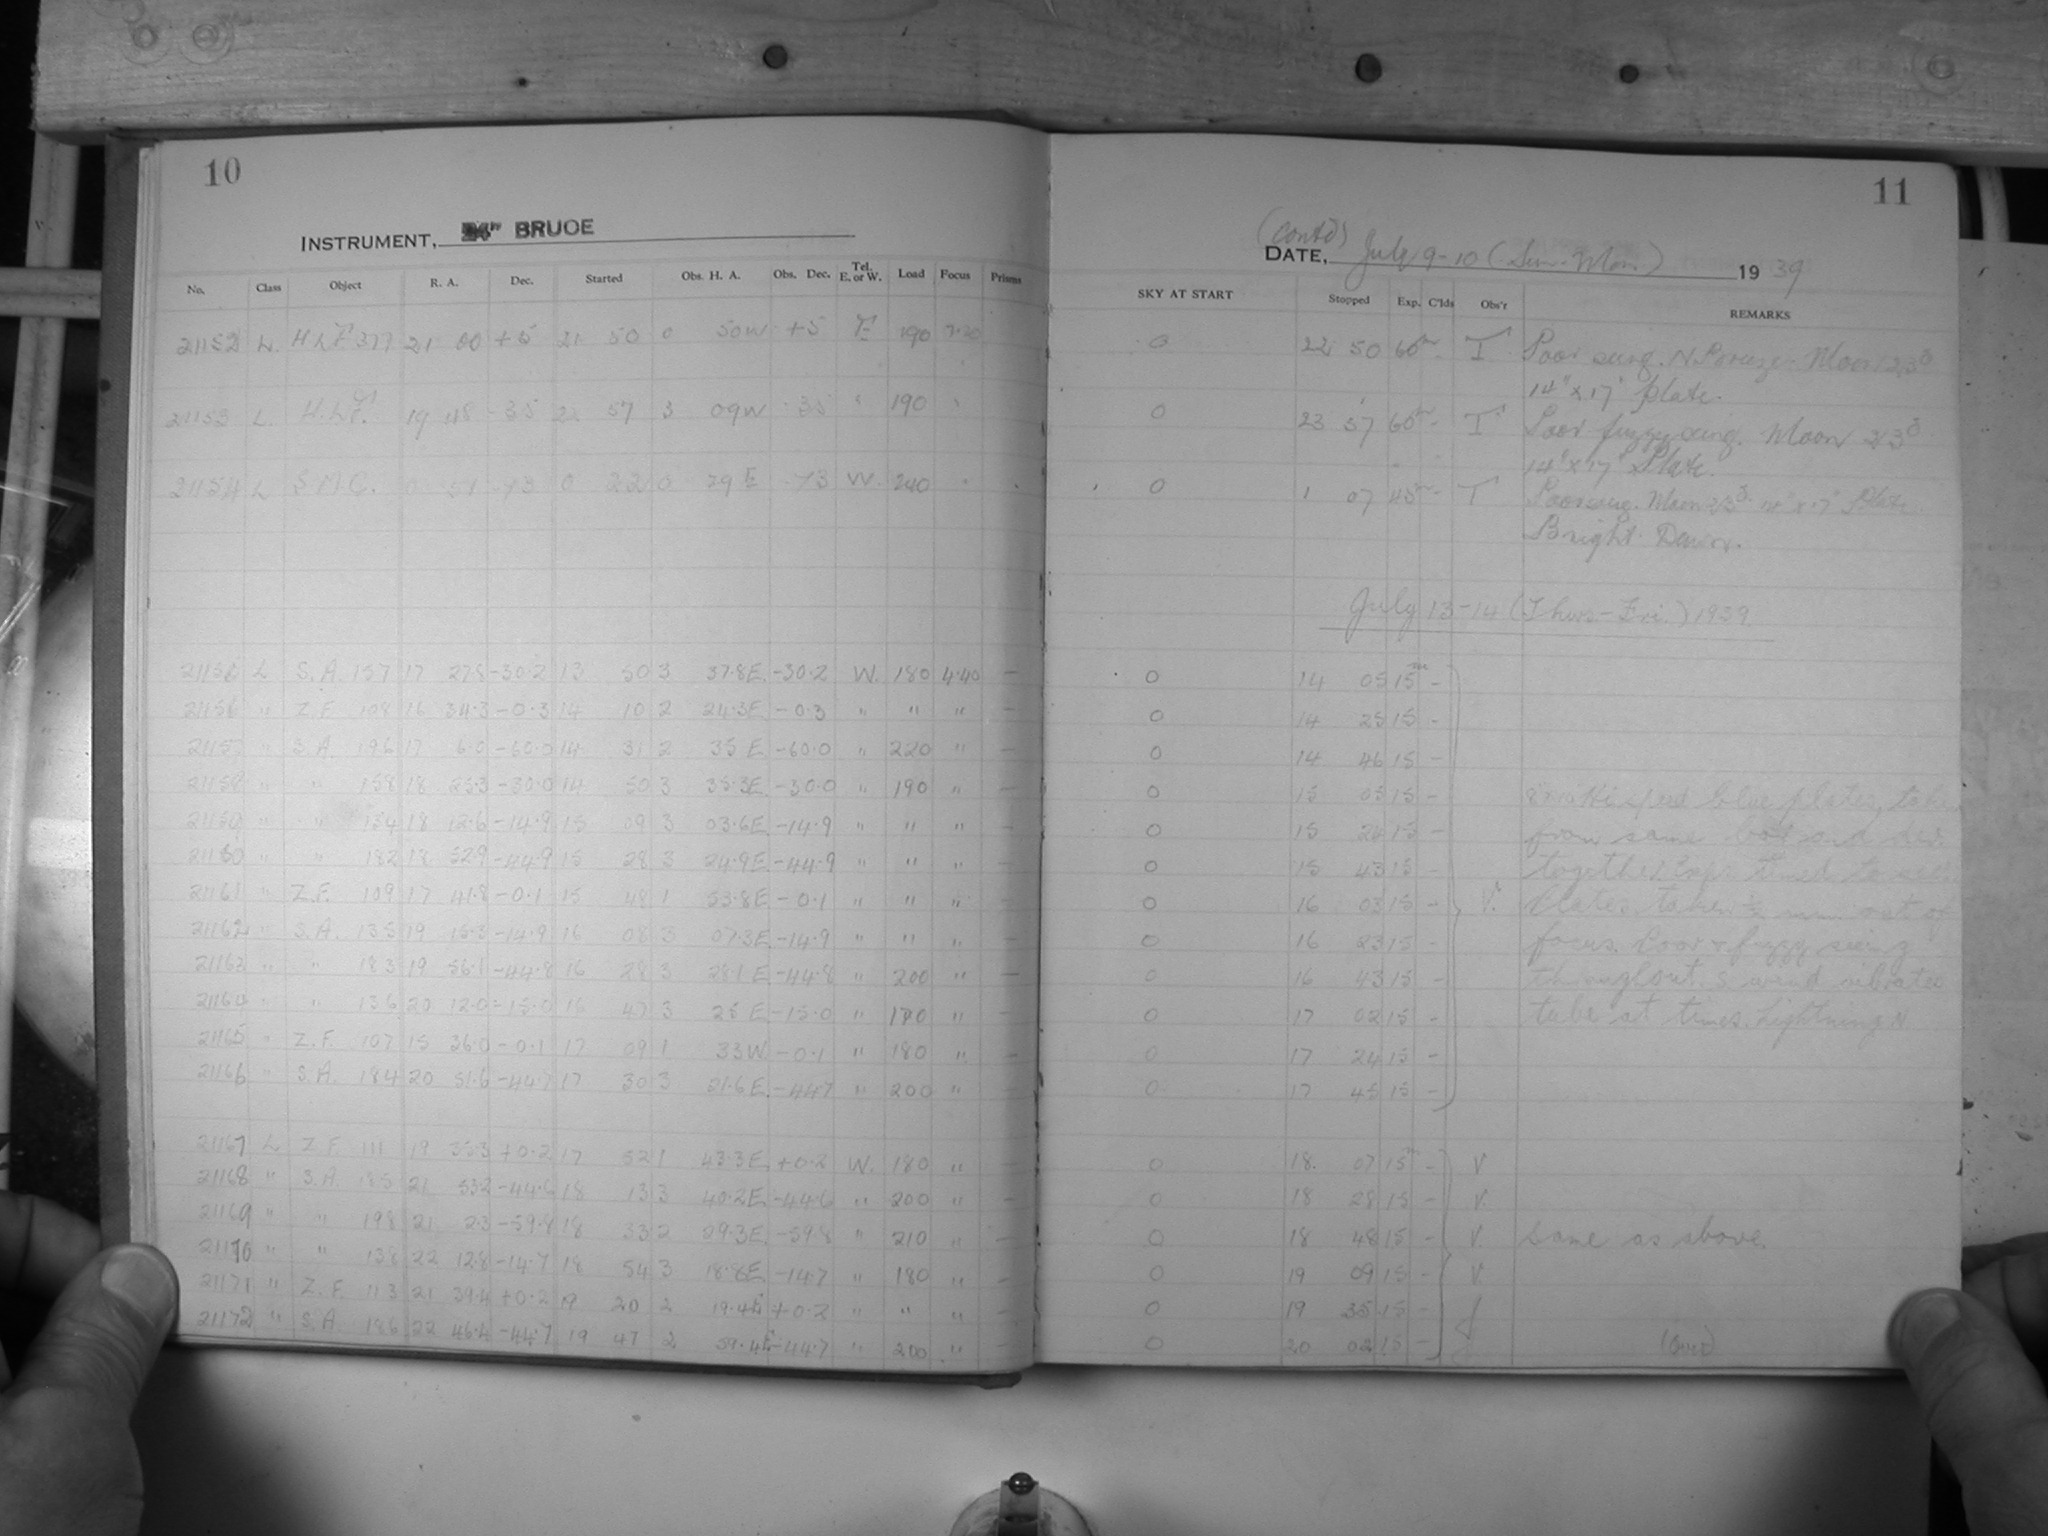 10
INSTRUMENT, 24" BRUCE
No. Class Object R. A. Dec. Started Obs. H. A. Obs. Dec. Tel. E. or W. Load Focus Prisms
21152 L. 377 21 00 +5 21 50 0 50W +5 E 190 7.20
21153 L. 19 48 -35 57 3 09W -35 " 190 "
21154 L S.M.C. 0 51 -73 0 22 0 29E -73 W. 240 "
L S.A. 157 17 27.8 -30.2 13 50 3 37.8E -30.2 W. 180 4.40 —
21156 " Z.F. 108 16 34.3 -0.3 14 10 2 24.3E -0.3 " " " —
21157 " S.A. 196 17 6.0 -60.0 14 31 2 35E -60.0 " 220 " —
21158 " " 158 18 25.3 -30.0 14 50 3 35.3E -30.0 " 190 " —
21159 " " 134 18 12.6 -14.9 15 09 3 03.6E -14.9 " " " —
21160 " " 182 18 52.9 -44.9 15 28 3 24.9E -44.9 " " " —
21161 " Z.F. 109 17 41.8 -0.1 15 48 1 53.8E -0.1 " " " —
21162 " S.A. 135 19 15.3 -14.9 16 08 3 07.3E -14.9 " " " —
21163 " " 183 19 56.1 -44.8 16 28 3 28.1E -44.8 " 200 " —
21164 " " 136 20 12.0 -15.0 16 47 3 25E -15.0 " 180 " —
21165 " Z.F. 107 15 36.0 -0.1 17 09 1 33W -0.1 " 180 " —
21166 " S.A. 184 20 51.6 -44.7 17 30 3 21.6E -44.7 " 200 " —
21167 L Z.F. 111 19 35.3 +0.2 17 52 1 43.3E +0.2 W. 180 " —
21168 " S.A. 185 21 53.2 -44.6 18 13 3 40.2E -44.6 " 200 " —
21169 " " 198 21 2.3 -59.8 18 33 2 29.3E -59.8 " 210 " —
21170 " " 138 22 12.8 -14.7 18 54 3 18.8E -14.7 " 180 " —
21171 " Z.F. 113 21 39.4 +0.2 19 20 2 19.4E +0.2 " " " —
21172 " S.A. 186 22 46.4 -44.7 19 47 2 59.4E -44.7 " 200 " —
11
(Contd)
DATE, July 9-10 (Sun-Mon) 1939
SKY AT START Stopped Exp. C'lds Obs'r REMARKS
0 22 50 60m - T Poor seeing. N Breeze. Moon 23d
14" x 17" plate.
0 23 57 60m - T Poor fuzzy seeing. Moon 23d
14" x 17" Plate.
0 1 07 45m - T Poor seeing. Moon 23d 14" x 17" Plate
Bright Dawn.
July 13-14 (Thurs-Fri.) 1939
0 14 05 15m -
0 14 25 15 -
0 14 46 15 -
0 15 05 15 - 8x10 Hi speed blue plates, taken
0 15 24 15 - from same box and dev.
0 15 43 15 - together
0 16 03 15 - V. Plates taken ½ mm out of
0 16 23 15 - focus. Poor & fuzzy seeing
0 16 43 15 - throughout. S wind vibrates
0 17 02 15 - tube at times. Lightning N
0 17 24 15 -
0 17 45 15 -
0 18. 07 15m - V
0 18 28 15 - V.
0 18 48 15 - V. Same as above.
0 19 09 15 - V.
0 19 35 15 - J
0 20 02 15 - (Over)